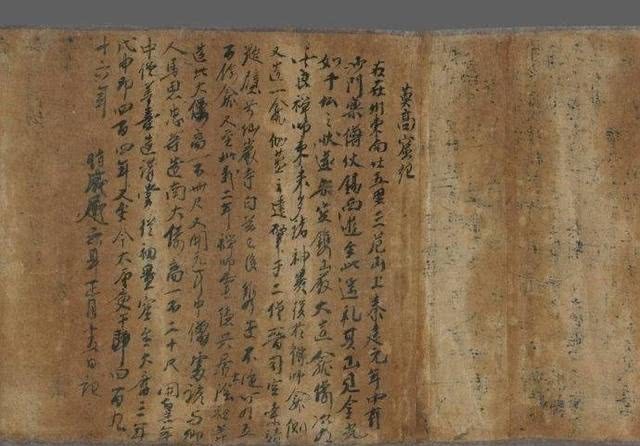 莫高窟記
右在州東南廿五里三危山上秦建元年中有
沙門樂僔仗錫西遊至此遙礼其山見金光
如千仏之狀遂架空鐫巖大造龕像次有
法良禪師東來多諸神異復於僔師龕側
又造一龕伽藍之建肇於二僧晉司空索靖
題壁号仙巖寺自茲以後鐫造不絕可有五
百余龕又至延載二年禪師靈隱共居陰祖等
造北大像高一百卌尺又開元年中僧處諺與鄉
人馬思忠等造南大像高一百二十尺開皇年
中僧善喜造講堂從初置窟至大曆三年
戊申即四百四年又至今大唐庚午即四百九
十六年 時咸通六年正月十五日記